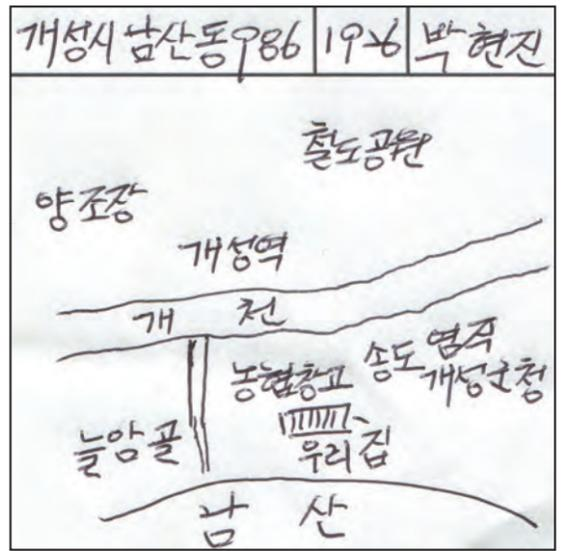 개성시 남산동 986 1926 박현진
철도공원
양조장
개성역
개천
농협창고 송도 염직
개성군청
늘암골
우리집
남산